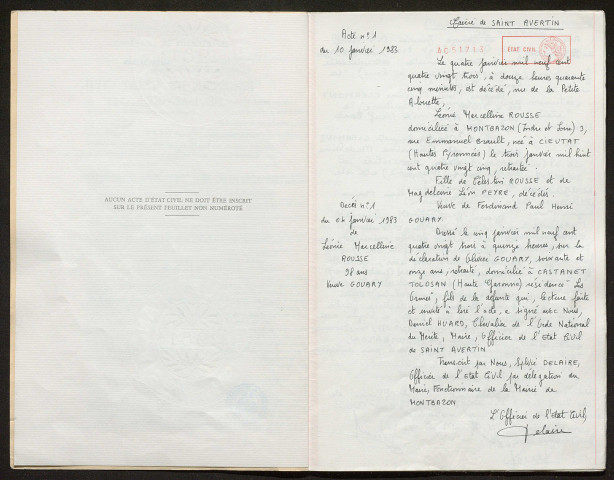 AUCUN ACTE D'ÉTAT CIVIL NE DOIT ÊTRE INSCRIT
SUR LE PRÉSENT FEUILLET NON NUMÉROTÉ
Mairie de SAINT AVERTIN
Acte n°1
du 10 janvier 1983
ÉTAT CIVIL
Le quatre janvier mil neuf cent
quatre vingt trois, à douze heures quarante
cinq minutes, est décédée, rue de la Petite
Alouette,
Léonie Marcelline ROUSSE
domiciliée à MONTBAZON (Indre et Loire) 3,
rue Emmanuel Brault, née à CIEUTAT
(Hautes Pyrénées) le trois janvier mil huit
cent quatre vingt cinq, retraitée.
Fille de Célestin ROUSSE et de
Magdeleine Léon PEYRE, décédés.
Veuve de Ferdinand Paul Henri
GOUARY.
Décès n°1
du 04 janvier 1983
de
Léonie Marcelline
ROUSSE
98 ans
Veuve GOUARY
Dressé le cinq janvier mil neuf cent
quatre vingt trois à quinze heures, sur la
déclaration de Olivier GOUARY, soixante et
onze ans, retraité, domicilié à CASTANET
TOLOSAN (Haute Garonne) résidence "Les
Ormes", fils de la défunte qui, lecture faite
et invité à lire l'acte, a signé avec Nous,
Daniel HUARD, Chevalier de l'Ordre National
du Mérite, Maire, Officier de l'Etat Civil
de SAINT AVERTIN
Transcrit par Nous, DELAIRE,
Officier de l'Etat Civil par délégation du
Maire, Fonctionnaire de la Mairie de
MONTBAZON
L'Officier de l'état Civil,
Delaire